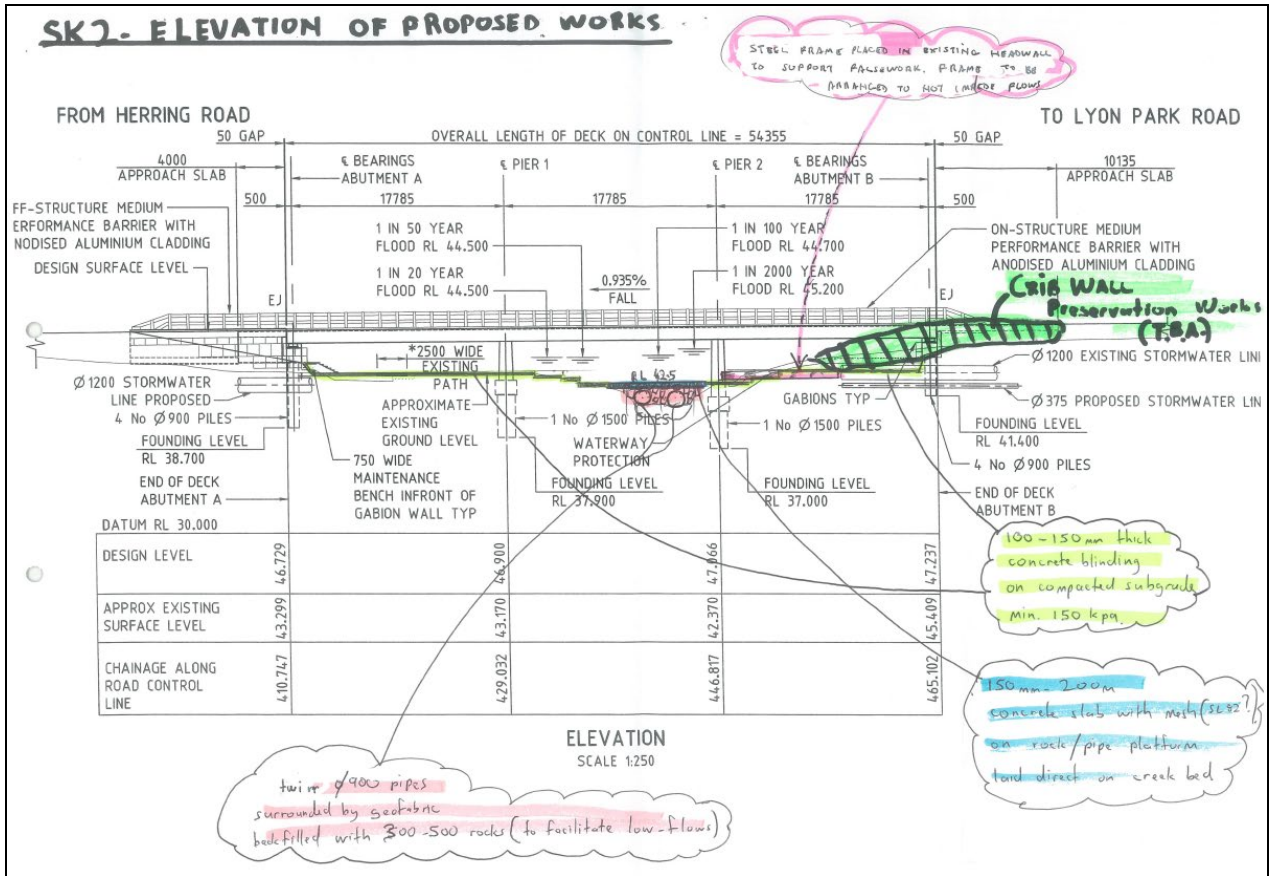 SK2- ELEVATION OF PROPOSED WORKS
STEEL FRAME PLACED IN EXISTING HEADWALL
TO SUPPORT FALSEWORK. FRAME TO BE
ARRANGED TO NOT IMPEDE FLOWS
FROM HERRING ROAD
TO LYON PARK ROAD
50 GAP
OVERALL LENGTH OF DECK ON CONTROL LINE = 54355
50 GAP
4000
APPROACH SLAB
℄ BEARINGS
ABUTMENT A
℄ PIER 1
℄ PIER 2
℄ BEARINGS
ABUTMENT B
10135
APPROACH SLAB
500
17785
17785
17785
500
FF-STRUCTURE MEDIUM
ERFORMANCE BARRIER WITH
NODISED ALUMINIUM CLADDING
DESIGN SURFACE LEVEL
1 IN 50 YEAR
FLOOD RL 44.500
1 IN 20 YEAR
FLOOD RL 44.500
0.935%
FALL
1 IN 100 YEAR
FLOOD RL 44.700
1 IN 2000 YEAR
FLOOD RL 45.200
ON-STRUCTURE MEDIUM
PERFORMANCE BARRIER WITH
ANODISED ALUMINIUM CLADDING
EJ
EJ
CRIB WALL
Preservation Works
(T.B.A)
*2500 WIDE
EXISTING
PATH
RL 42.5
Ø1200 EXISTING STORMWATER LINI
Ø1200 STORMWATER
LINE PROPOSED
4 No Ø900 PILES
FOUNDING LEVEL
RL 38.700
END OF DECK
ABUTMENT A
APPROXIMATE
EXISTING
GROUND LEVEL
750 WIDE
MAINTENANCE
BENCH INFRONT OF
GABION WALL TYP
1 No Ø1500 PILES
WATERWAY
PROTECTION
FOUNDING LEVEL
RL 37.900
GABIONS TYP
1 No Ø1500 PILES
FOUNDING LEVEL
RL 37.000
Ø375 PROPOSED STORMWATER LIN
FOUNDING LEVEL
RL 41.400
4 No Ø900 PILES
END OF DECK
ABUTMENT B
DATUM RL 30.000
DESIGN LEVEL
46.729
46.900
47.066
47.237
APPROX EXISTING
SURFACE LEVEL
43.299
43.170
42.370
45.409
CHAINAGE ALONG
ROAD CONTROL
LINE
410.747
429.032
446.817
465.102
100-150mm thick
concrete blinding
on compacted subgrade
min. 150 kpa.
150mm-200m
concrete slab with mesh (SL82?)
on rock/pipe platform
laid direct on creek bed
ELEVATION
SCALE 1:250
twin Ø900 pipes
surrounded by geofabric
backfilled with 300-500 rocks (to facilitate low-flows)